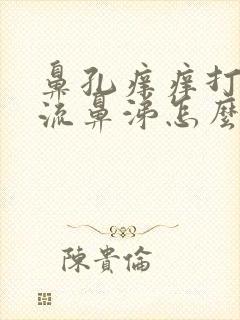 鼻孔痒痒打
流鼻涕怎麼
陳貴倫